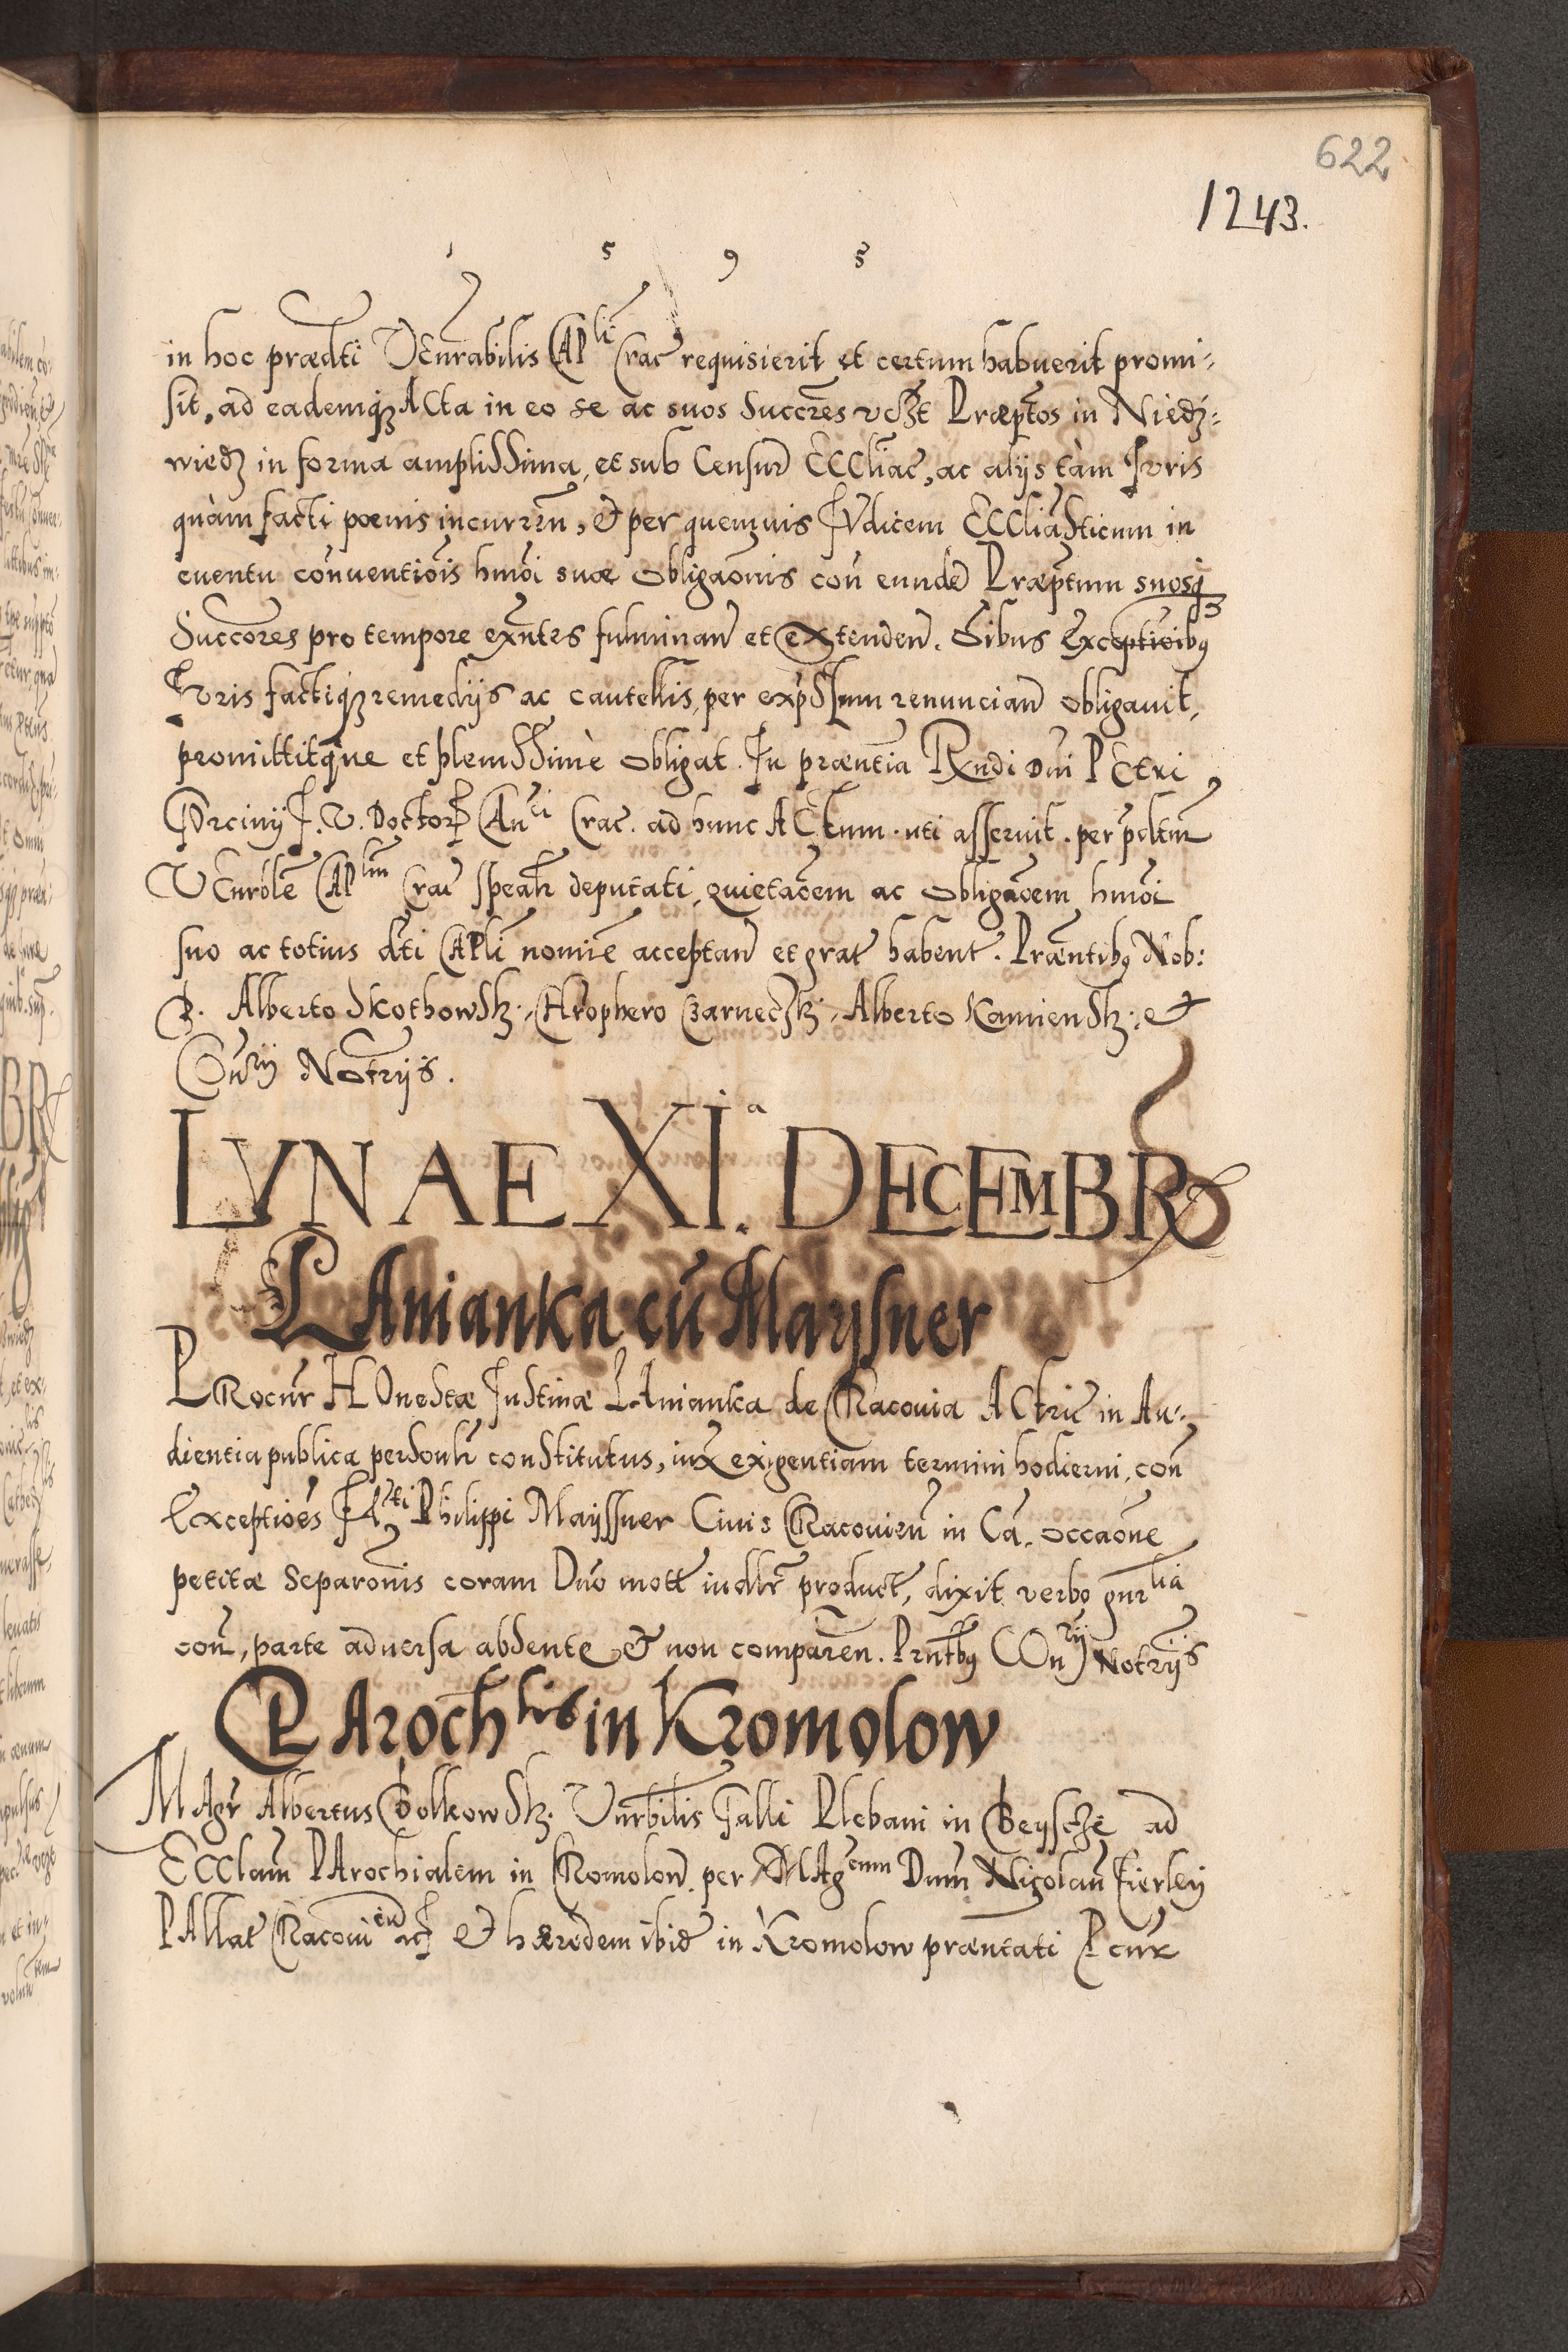 622
1243.
1 5 9 3
in hoc prædti Venrabilis CAPli Crac requisierit et certum habuerit promi-
sit, ad eademqz Acta in eo se ac suos Succres Præptos in Niedz-
wiedz in forma amplissima, et sub Censur ECCliac, ac alijs tàm Iuris
quàm facti poenis incurren, et per quemuis IVdicem ECCliasticum in
euentu conuentiois hmoi suæ obligaonis con eunde Præptum suosq
Succores pro tempore exntes fulminan et extenden. Oibus Exceptioibq
Iuris factiqz remedijs ac cautellis, per expssum renuncian obligauit,
promittitque et plenissimè obligat. In præntia Rndi Dni PEtri
Gorcinij I. V. Doctor Canci Crac. ad hunc ACtum uti asseruit per pdtm
VEnrble CAPlm Crac spealr deputati, quietacem ac obligacem hmoi
suo ac totius dti CAPli nomie acceptan et grat habent. Præntibq Nob:
D. Alberto Skotbowsk. CHrophero Czarnecsk. Alberto Kamiensk. et
COnrij Notrijs.
LVNAE XI.a DECEMBR
LAnianka cu Maysner
PRocur HOnestæ Iustinæ LAnianka de CRacouia ACtric in Au-
dientia publica personlr constitutus, iux exigentiam termini hodierni, con
Exceptioes Philippi Mayssner Ciuis CRacouien in Ca. occaone
petitæ Separonis coram Dno mott iudlr product, dixit verbo gnrlia
con, parte aduersa absente et non comparen. Prntbq COnrij Notrijs
PArochlis in Kromolow
MAgr Albertus Golkowsk. Vnrbilis Galli Plebani in Beysche ad
ECClam PArochialem in CRomolow per MAgcum Dnm Nicolau Fierley
PAllat CRacouien etc et hæredem ibid in Kromolow præntati Pcur